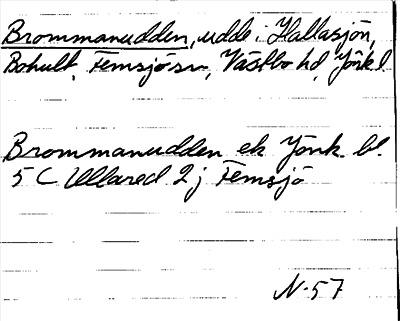 Brommanudden, udde i Hallasjön,
Bohult, Femsjö sn, Västbo hd, Jönk l.
Brommanudden ek Jönk. bl.
5 C Ullared 2 j Femsjö
N-57